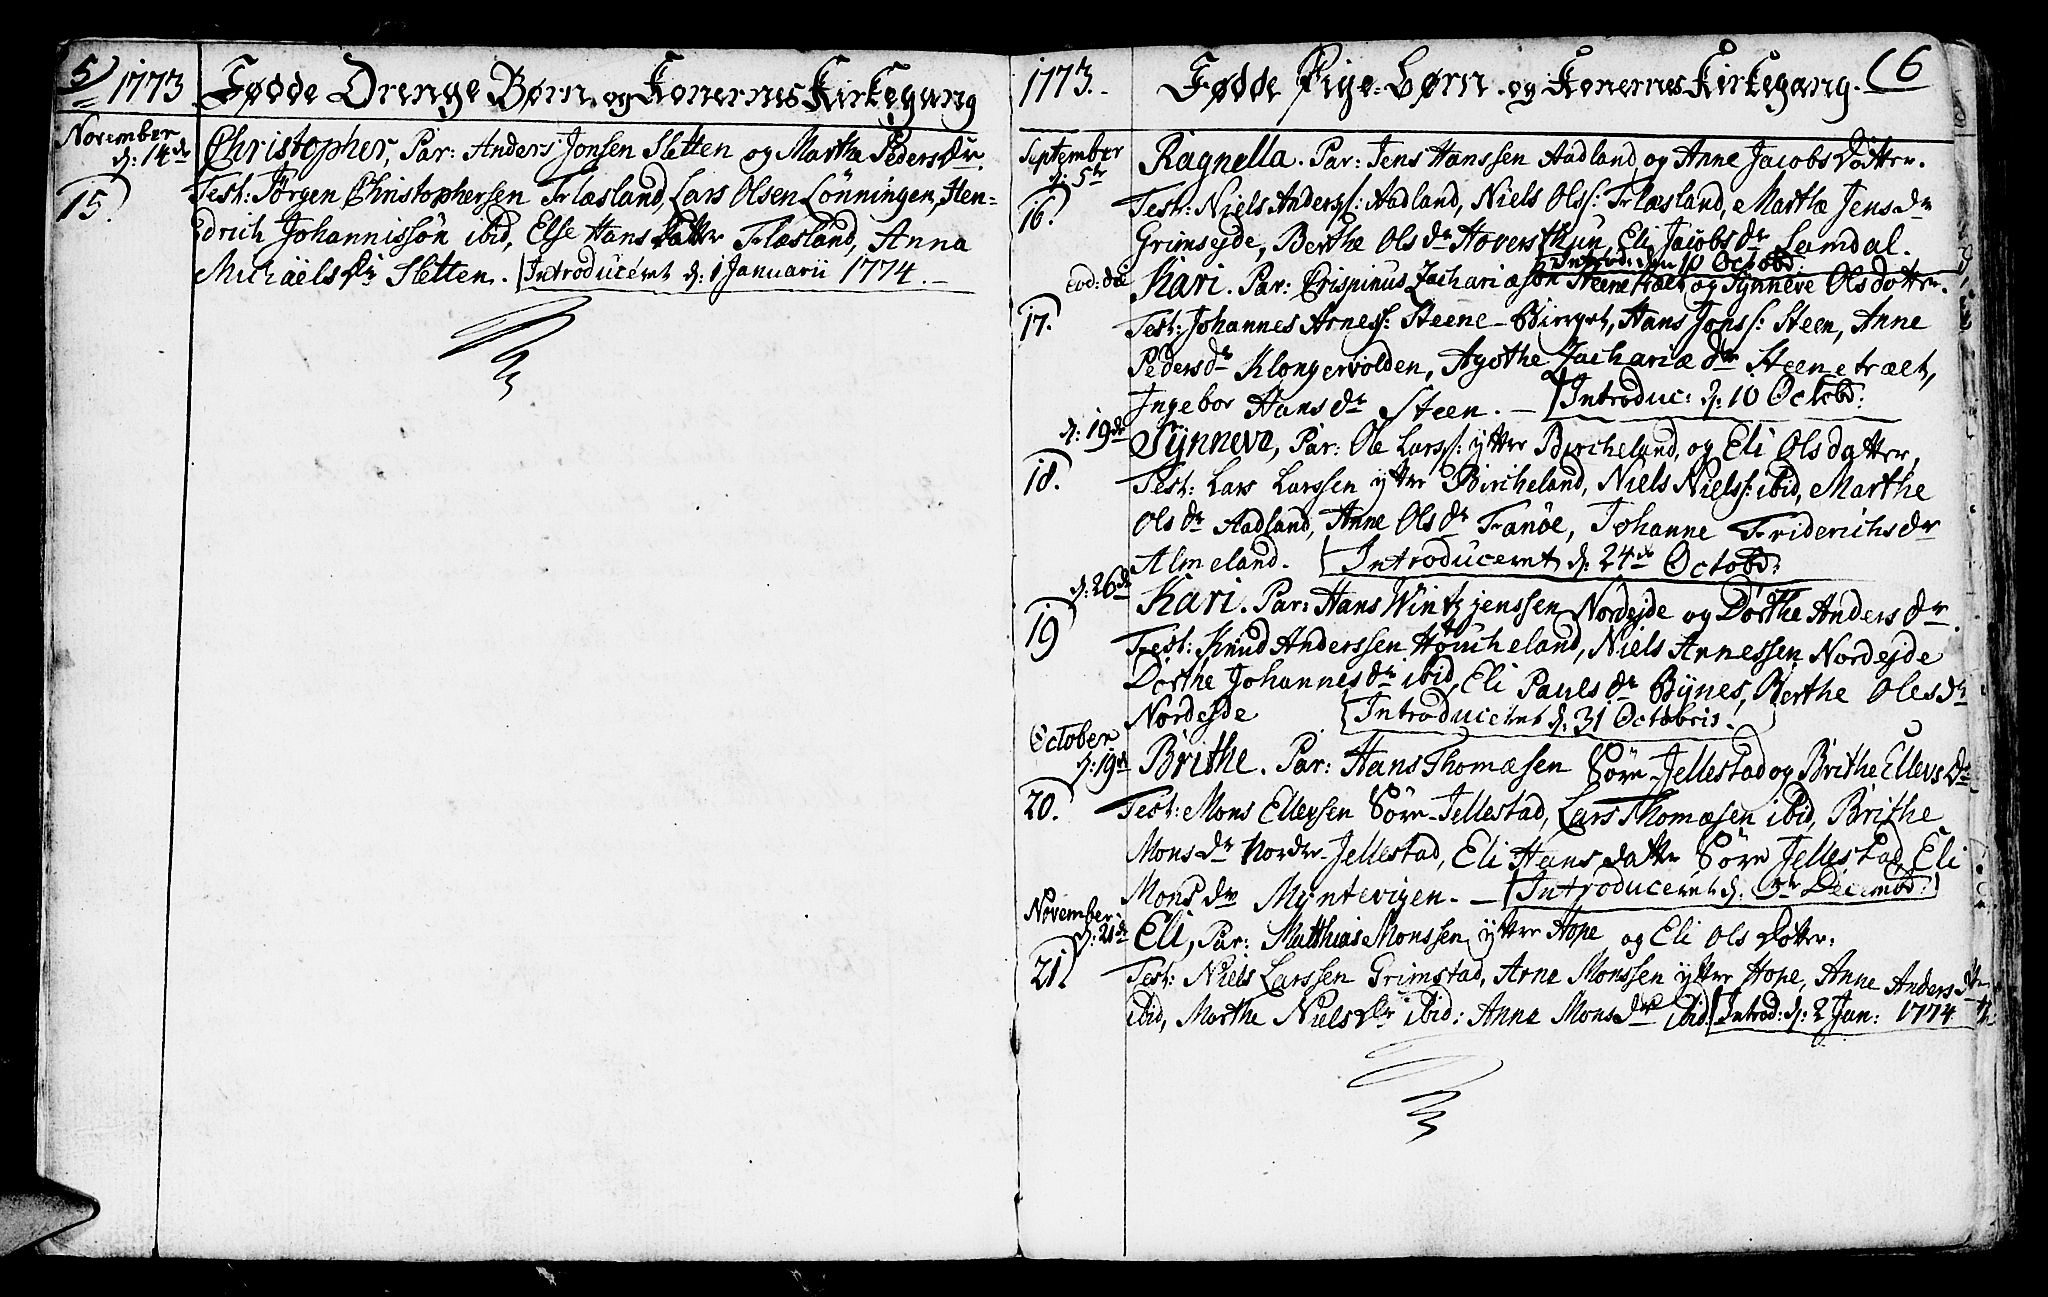 5) 1773 Fødde Drenge Børn, og Konernes Kirkegang
November
d: 14de Christopher, Par: Anders Jonsen Sletten og Marthe Pedersdr.
15. Test: Jörgen Christophersen Flæsland, Lars Olsen Lönningen, Hen-
drich Johannissön ibid, Else Hans Datter Flæsland, Anna
Michäels Dr Sletten. Introduceret d: 1 Januarii 1774.
1773. Fødde Pige-Børn og Konernes Kirkegang. (6
September
d: 5te Ragnella. Par: Jens Hanssen Aadland og Anne Jacobs Dotter.
16. Test: Niels Anderss: Aadland, Niels Olss: Flæsland, Marthe Jensdr
Grimsejde, Berthe Olsdr Hoversthun, Eli Jacobsdr Lamdal.
Introd: den 10 Octobr:
eod: die Kari. Par: Crispinus Zachariæsön Steenetræet og Synneve Olsdotter.
17. Test: Johannes Arness: Steene-Birget, Hans Jonss: Steen, Anne
Pedersdr Klongervolden, Agothe Zachariædr Steenetræet,
Ingebor Hansdr Steen. – Introduc: d: 10 Octobr:
d: 19de Synneva, Par: Ole Larss: ytter Bircheland, og Eli Olsdatter,
18. Test: Lars Larssen ytter Bircheland, Niels Nielss: ibid, Marthe
Olsdr Aadland, Anne Olsdr Fanöe, Johanne Friderichsdr
Almeland. Introduceret d: 24de Octobr:
d: 26de Kari. Par: Hans Wintzjenssen Nordejde og Dorthe Andersdr.
19 Test: Knud Anderssen Høucheland, Niels Arnessen Nordejde
Dorthe Johannesdr ibid, Eli Paulsdr Bÿnes, Berthe Olesdr
Nordejde Introduceret d: 31 Octobris.
October
d: 19de Brithe. Par: Hans Thomæsen Söre Jellestad og Brithe Ellevsdr
20. Test: Mons Ellevsen Söre-Jellestad, Lars Thomæsen ibid, Brithe
Monsdr Nordre-Jellestad, Eli Hansdatter Söre Jellestad, Eli
Monsdr Myntevigen. – Introduceret d: Decembr:
November
d: 21de Eli, Par: Matthias Monssen ytter Hope og Eli Ols Dotter.
21. Test: Niels Larssen Grimstad, Arne Monssen ytter Hope, Anne Andersdr
ibid, Marthe Niels Dr ibid: Anna Monsdr ibid. Introd: d: 2 Jan: 1774